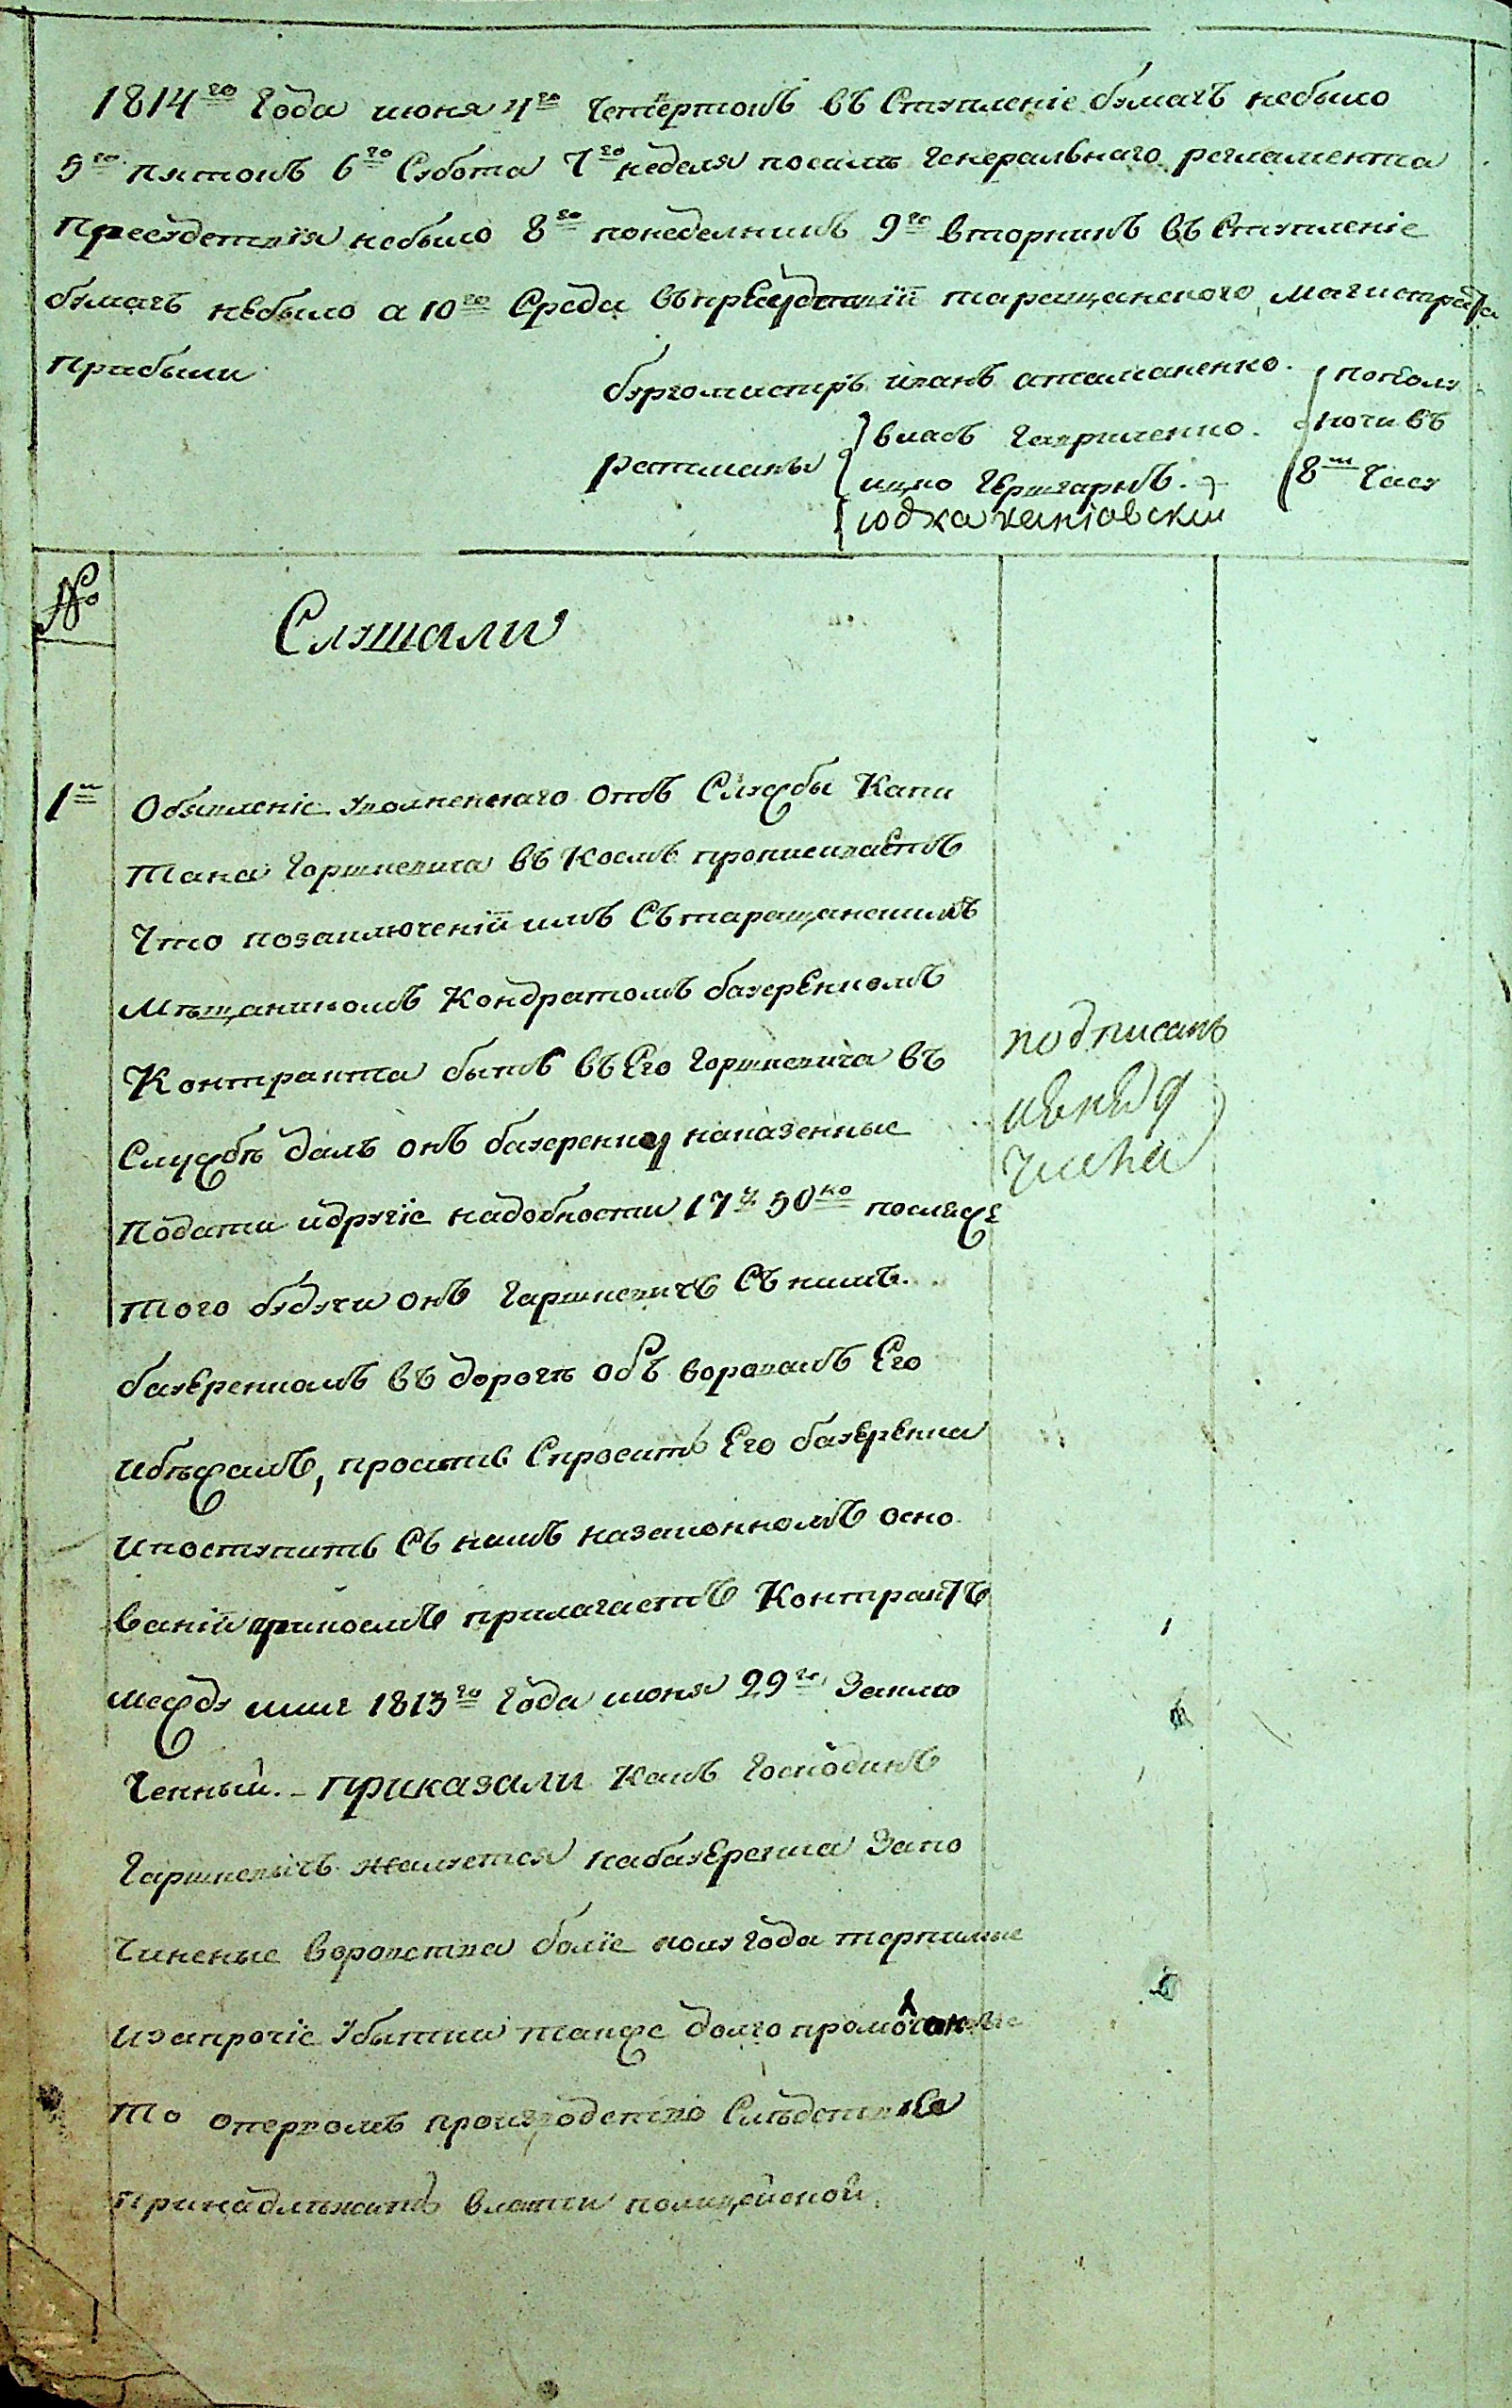 1814го года июня 4го четвертокъ въ Ступленіе бумагъ небыло
5го пятокъ 6го Субота 7го неделя посилѣ генеральнаго регламента
Пресудствія небыло 8го понеделникъ 9го вторникъ въ Ступленіе
бумагъ небыло а 10го Среда въ пресудствіи таращанского магистрата
прибыли
бургомистръ иванъ атаманенко.
ратманы
власъ гавриленко.
ицко Гершгарнъ.
юдка каніовскій
пополу
ночи въ
8м часу
№
Слушали
1е
Объявленіе уволненнаго отъ Службы Капи
тана Горшкевича въ коемъ прописиваетъ
что позаключеніи имъ Съ таращанскимъ
мѣщаниномъ Кондратомъ базеренкомъ
Контракта быть въ Его Горшкевича въ
Службѣ далъ онъ базеренку наказенные
подати идругіе надобности 17 р 50ко послиже
того будучи онъ Гаршкевичъ Съ нимъ
базеренкомъ въ дорогѣ объ воровалъ Его
ибѣжалъ, проситъ Спросить Его базеренка
ипоступить Съ нимъ назаконномъ осно
ваніи прикоемъ прилагаетъ Контрактъ
между ими 1813го года июня 29го заклю
ченный. – приказали какъ Господинъ
Гаршкевичъ жалуется набазеренка запо
чиненые воровства боліе полугода терпимые
изапрочіе убытки также долго промолчаные
то оперномъ производство Слѣдствія
принадлѣжитъ власти полицейской.
подписанъ